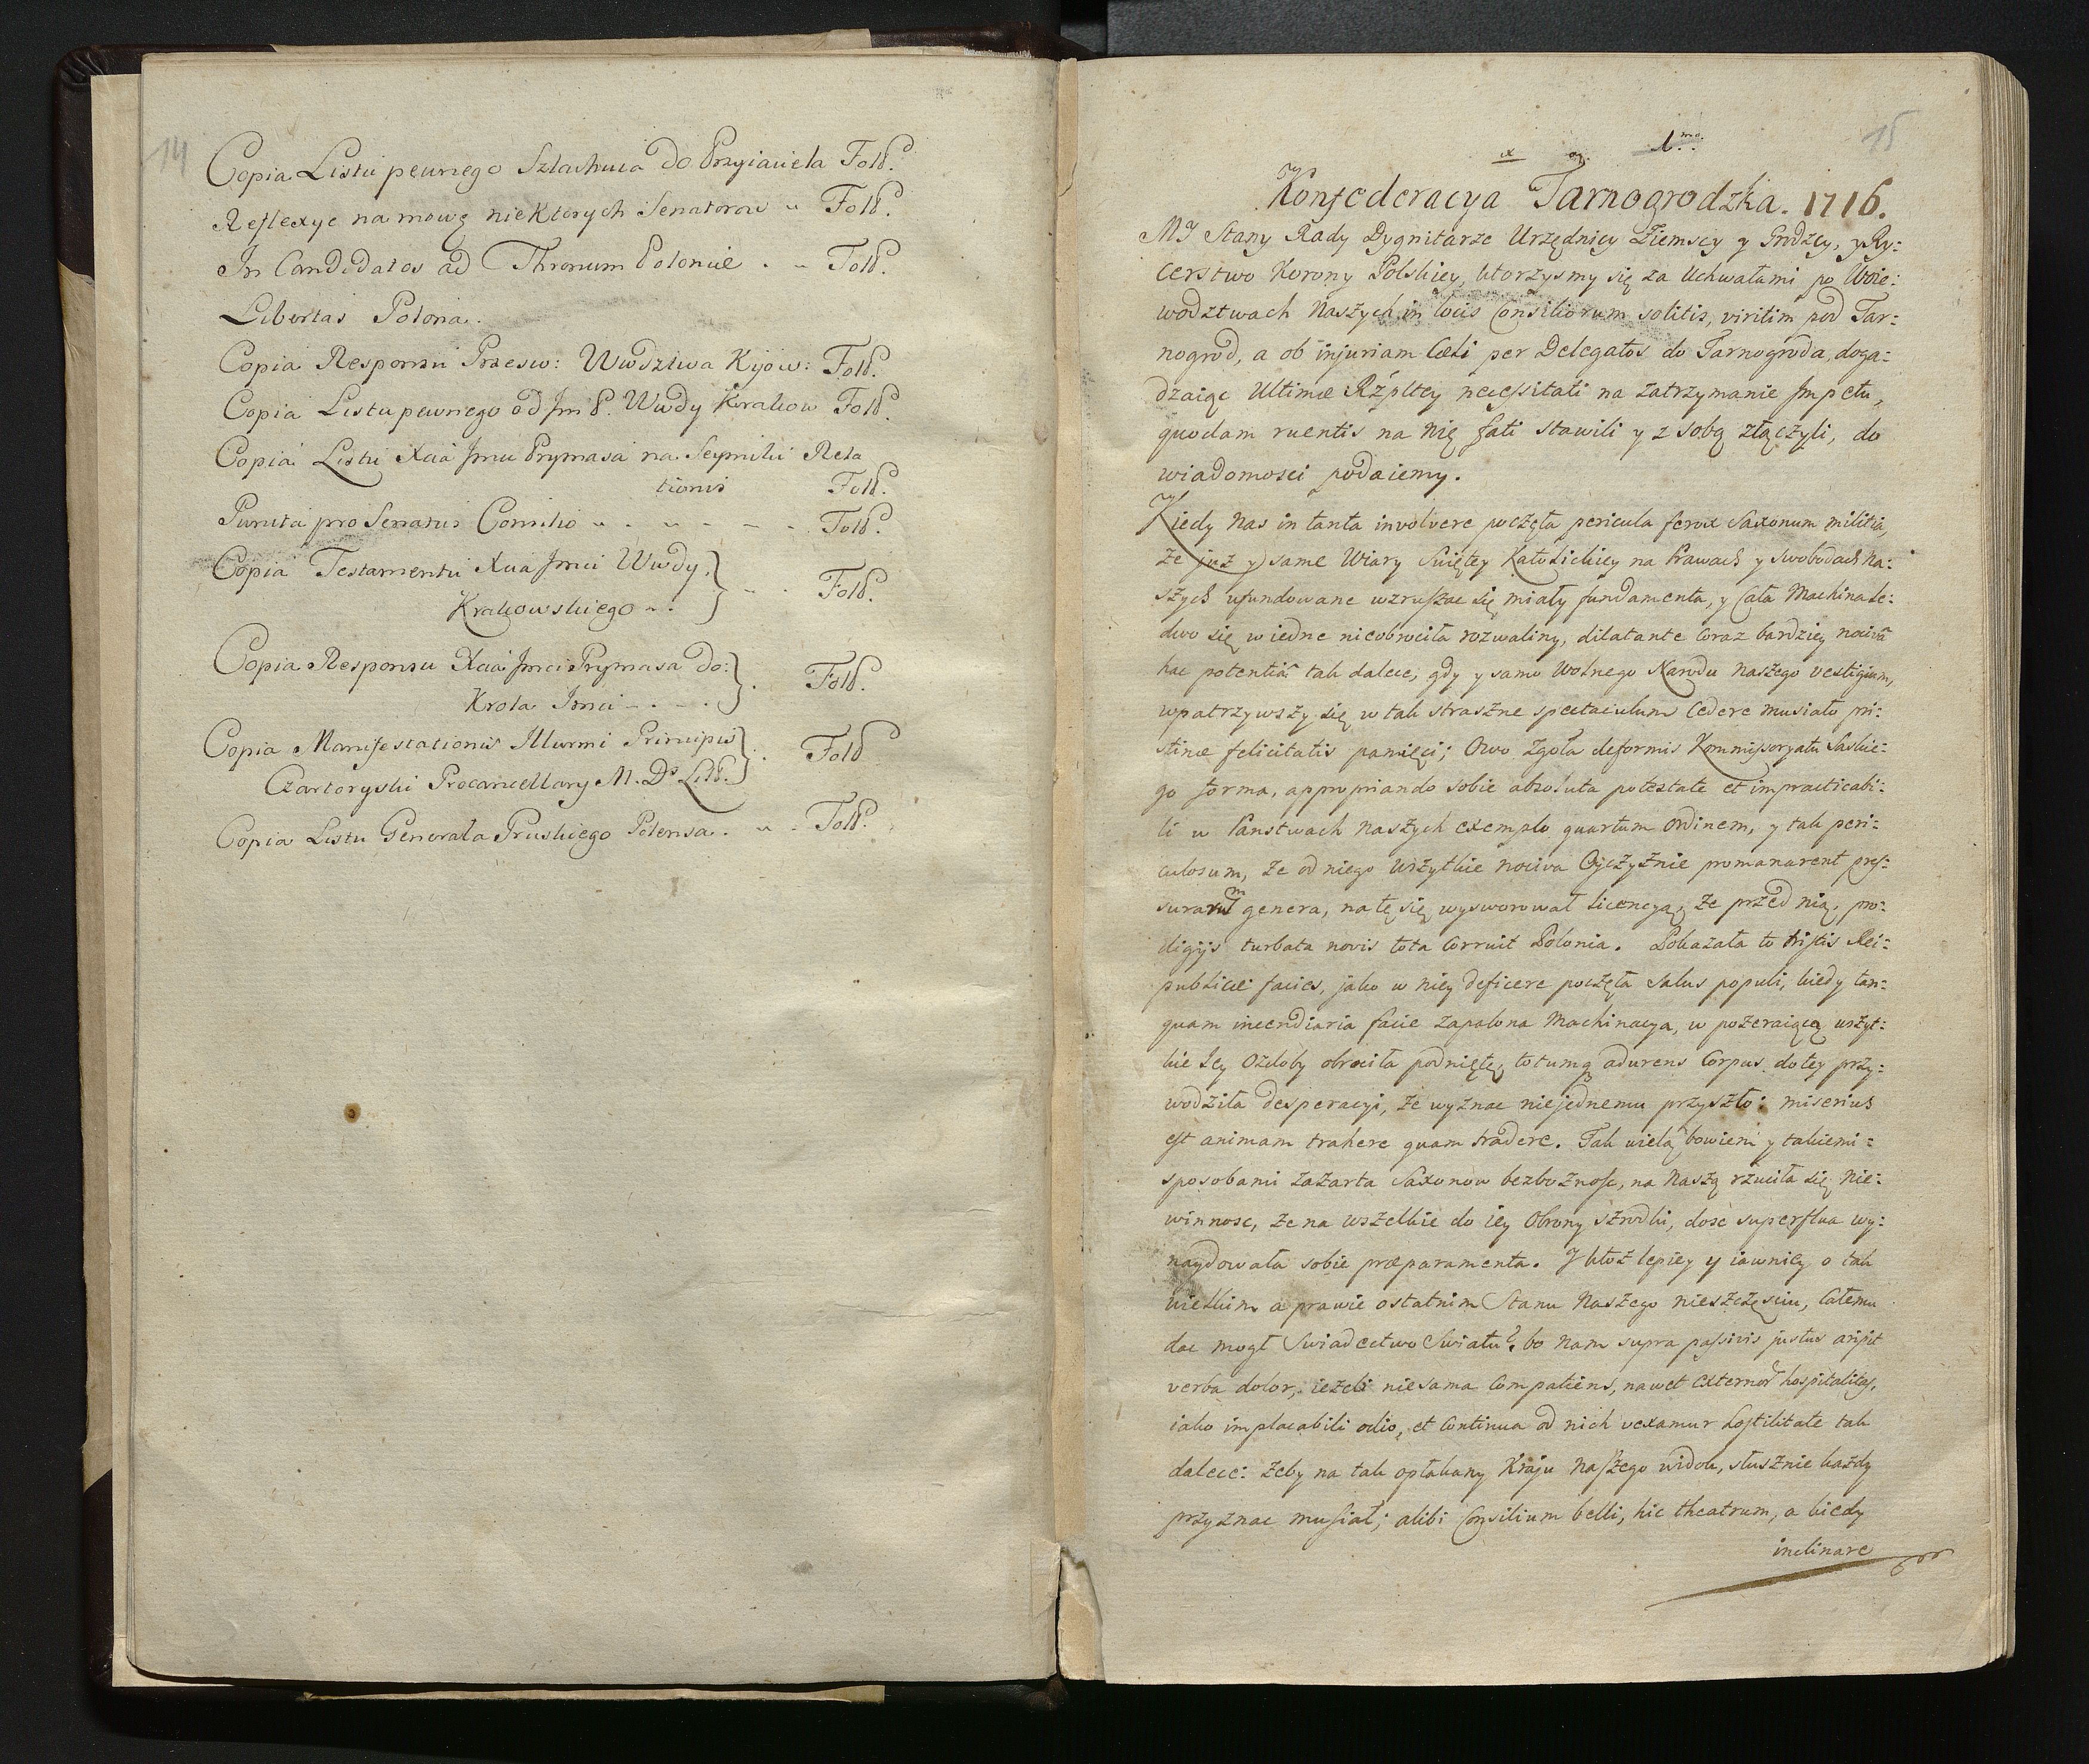 14
Copia Listu pewnego Szlachcica do Przyiaciela Fol.
Reflexye na mowę niektorych Senatorow " Fol.
In Candidatos ad Thronum Poloniæ . " Fol.
Libertas Polona.
Copia Responsu Przesw: Wwodztwa Kijow: Fol.
Copia Listu pewnego od Jm P. Wwdy Krakow Fol.
Copia Listu Xcia Jmci Prymasa na Seymiki Rela
tionis Fol.
Puncta pro Senatus Consilio " . " - - - . Fol.
Copia Testamentu Xcia Jmci Wwdy
Krakowskiego - . } - . Fol.
Copia Responsu Xcia Jmci Prymasa do:
Krola Jmci - . - . } . Fol.
Copia Manifestationis Illurmi Principis
Czartoryski Procancellary M. D. Litt. } . Fol
Copia Listu Generała Pruskiego Polensa . " . Fol.
1mo.
15
Konfederacya Tarnogrodzka. 1716.
MY Stany Rady Dygnitarze Urzędnicy Ziemscy y Grodzcy, y Ry:
cerstwo Korony Polskiey, ktorzysmy się za Uchwałami po Woie:
wodztwach Naszych in locis Consiliorum solitis, viritim pod Tar:
nogrod, a ob injuriam Cœli per Delegatos do Tarnogroda, doga:
dzaiąc Ultimæ Rzpltey necessitati na zatrzymanie Impetu,
quodam ruentis na Nię fati stawili y z sobą złączyli, do
wiadomosci podaiemy.
Kiedy Nas in tanta involvere poczęła pericula ferox Saxonum militia,
że już y same Wiary Swiętey Katolickiey na Prawach y Swobodach Na:
szych ufundowane wzruszac się miały fundamenta, y Cała Machina le:
dwo się w iedne nieobrociła rozwaliny, dilatante Coraz bardziey nocivâ
hac potentiâ tak dalece, gdy y samo Wolnego Narodu Naszego vestigium,
wpatrzywszy się w tak straszne spectaculum Cedere musiało pri:
stinæ felicitatis pamięci; Owo zgoła deformis Kommissoryatu Saskie:
go forma, appropriando sobie absoluta potestate et impracticabi:
li w Panstwach Naszych exemplo quartum Ordinem, y tak peri:
culosum, że od niego wszytkie nociva Ojczyznie promanarent pres:
surarum genera, na tę się wysworował licencyą, że przed nią, pro:
digijs turbata novis tota Corruit Polonia. Pokazała to tristis Rei:
publicæ facies, jako w niey deficere poczęła Salus populi, kiedy tan:
quam incendiaria facie zapalona Machinacya, w pożeraiącą wszyt:
kie Jey Ozdoby obrociła podnietę, totumq adurens Corpus do tey przy:
wodziła desperacyi, że wyznac niejednemu przyszło: miserius
est animam trahere quam tradere. Tak wielą bowiem y takiemi:
sposobami zażarta Saxonow bezbożnosc, na Naszą rzuciła się Nie:
winnosc, że na wszelkie do iey Obrony szrodki, dosc superflua wy:
naydowała sobie præparamenta. Y ktoż lepiey y iawniey o tak
wielkim a prawie ostatnim Stanu Naszego nieszczęsciu, Całemu
dac mogł Swiadectwo Swiatu? bo Nam supra passivis justus aripit
verba dolor, ieżeli niesama Compatiens, nawet Externor hospitalitas,
iako implacabili odio, et Continua od nich vexamur hostilitate tak
dalece: żeby na tak opłakany Kraju Naszego widok, słusznie każdy
przyznac musiał; alibi Consilium belli, hic theatrum, a kiedy
inclinare